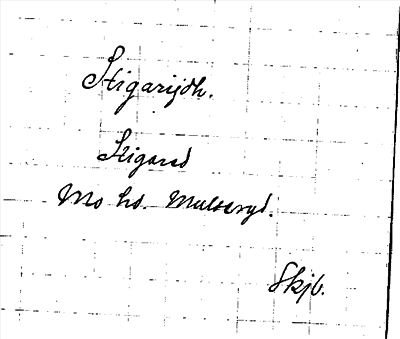 Stigarijdh.
Stigared
Mo hd. Mulseryd.
Skjb.